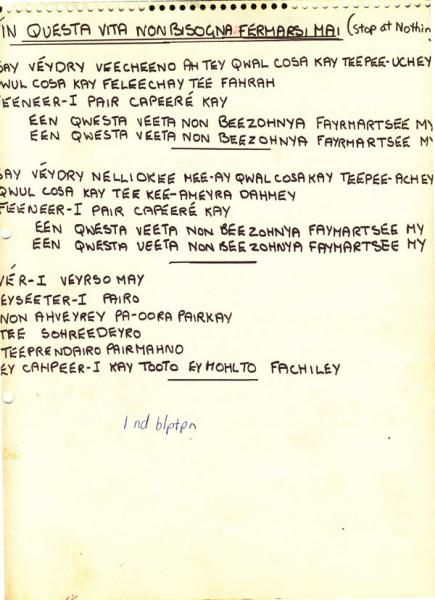 IN QUESTA VITA NON BISOGNA FERMARSI MAI (Stop at Nothin
SAY VÉYDRY VEECHEENO AH TEY QWAL COSA KAY TEEPEE-UCHEY
QWUL COSA KAY FELEECHAY TEE FAHRAH
FEENEER-I PAIR CAPEERÉ KAY
EEN QWESTA VEETA NON BEEZOHNYA FAYRMARTSEE MY
EEN QWESTA VEETA NON BEEZOHNYA FAYRMARTSEE MY
SAY VÉYDRY NELLIOKEE MEE-AY QWAL COSA KAY TEEPEE-ACHEY
QWUL COSA KAY TEE KEE-AMEYRA DAHMEY
FEENEER-I PAIR CAPEERÉ KAY
EEN QWESTA VEETA NON BEEZOHNYA FAYMARTSEE MY
EEN QWESTA VEETA NON BEEZOHNYA FAYMARTSEE MY
VÉR-I VEYRSO MAY
EYSEETER-I PAIRO
NON AHVEYREY PA-OORA PAIRKAY
TEE SOHREEDEYRO
TEEPRENDAIRO PAIRMAHNO
EY CAHPEER-I KAY TOOTO EY MOHLTO FACHILEY